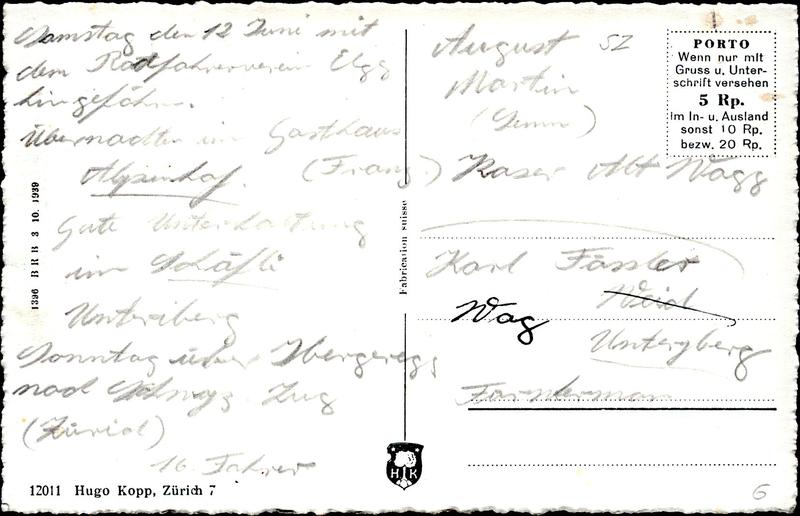 Samstag den 12 Juni mit
dem Radfahrerverein Elgg
hingefahrn.
Übernachten im Gasthaus
Alpenhof. (Franz.)
Gute Unterhaltung
im Schäfli
Unteriberg
Sonntag über Ibergeregg
nach Schwyz Zug
(Zürich)
16 Fahrer
1396 BRB 3 10. 1939
12011 Hugo Kopp, Zürich 7
Fabrication suisse
HK
August SZ
Martin
PORTO
Wenn nur mit
Gruss u. Unter-
schrift versehen
5 Rp.
Im In- u. Ausland
sonst 10 Rp.
bezw. 20 Rp.
Kaser Alt Wagg
Karl Fässler
Weid
Wag
Unteryberg
6